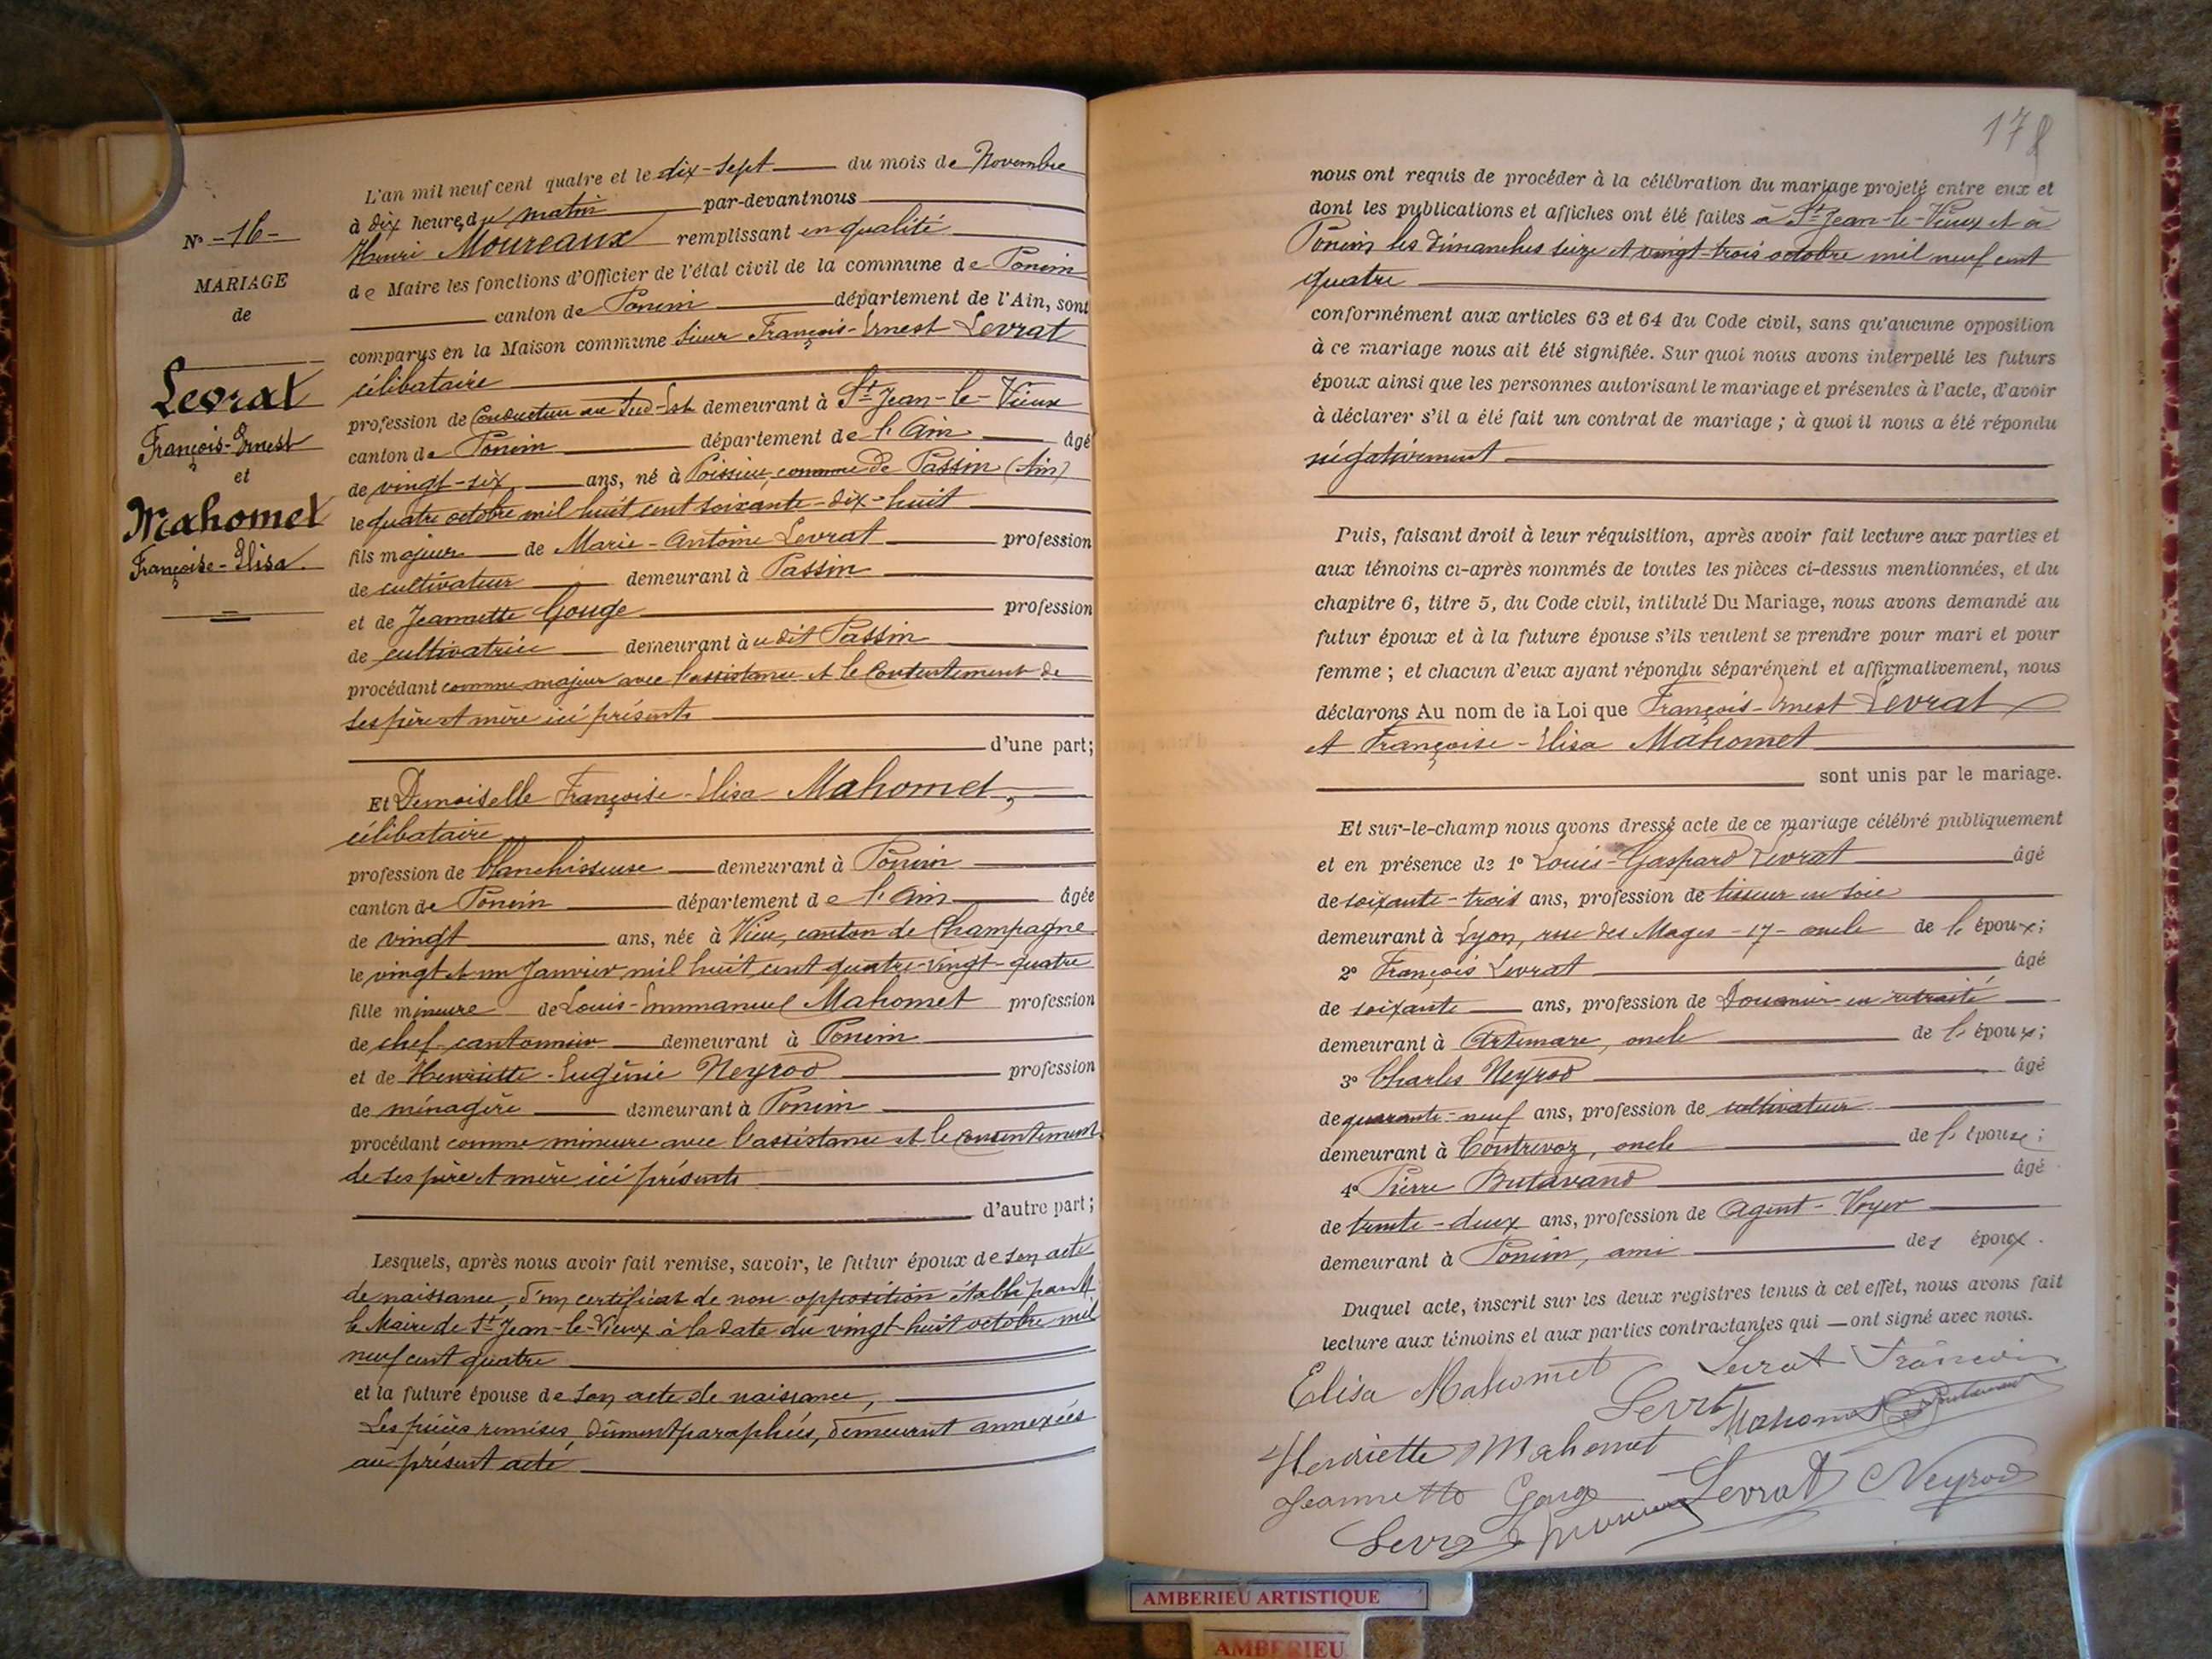 N° -16-
MARIAGE
de
Levrat
François-Ernest
et
Mahomet
Françoise-Elisa.
L'an mil neuf cent quatre et le dix-sept du mois de Novembre
à dix heures du matin par-devant nous
Henri Moureaux remplissant en qualité
de Maire les fonctions d'Officier de l'état civil de la commune de Poncin
canton de Poncin département de l'Ain, sont
comparus en la Maison commune Sieur François-Ernest Levrat
célibataire
profession de Conducteur au Sud-Est demeurant à St Jean-le-Vieux
canton de Poncin département de l'Ain âgé
de vingt-six ans, né à Poissieu, commune de Passin (Ain)
le quatre octobre mil huit cent soixante-dix-huit
fils majeur de Marie-Antoine Levrat profession
de cultivateur demeurant à Passin
et de Jeannette Gouge profession
de cultivatrice demeurant audit Passin
procédant comme majeur avec l'assistance et le consentement de
ses père et mère ici présents
d'une part;
Et Demoiselle Françoise-Elisa Mahomet,
célibataire
profession de blanchisseuse demeurant à Poncin
canton de Poncin département de l'Ain âgée
de vingt ans, née à Vieu, canton de Champagne
le vingt et un Janvier mil huit cent quatre-vingt-quatre
fille mineure de Louis-Emmanuel Mahomet profession
de chef-cantonnier demeurant à Poncin
et de Henriette-Eugénie Neyrod profession
de ménagère demeurant à Poncin
procédant comme mineure avec l'assistance et le consentement
de ses père et mère ici présents
d'autre part;
Lesquels, après nous avoir fait remise, savoir, le futur époux de son acte
de naissance, d'un certificat de non opposition établi par M.
le Maire de St Jean-le-Vieux à la date du vingt-huit octobre mil
neuf cent quatre
et la future épouse de son acte de naissance,
Les pièces remises, dûment paraphées, demeurent annexées
au présent acte
178
nous ont requis de procéder à la célébration du mariage projeté entre eux et
dont les publications et affiches ont été faites à St Jean-le-Vieux et à
Poncin les dimanches seize et vingt-trois octobre mil neuf cent
quatre
conformément aux articles 63 et 64 du Code civil, sans qu'aucune opposition
à ce mariage nous ait été signifiée. Sur quoi nous avons interpellé les futurs
époux ainsi que les personnes autorisant le mariage et présentes à l'acte, d'avoir
à déclarer s'il a été fait un contrat de mariage ; à quoi il nous a été répondu
négativement
Puis, faisant droit à leur réquisition, après avoir fait lecture aux parties et
aux témoins ci-après nommés de toutes les pièces ci-dessus mentionnées, et du
chapitre 6, titre 5, du Code civil, intitulé Du Mariage, nous avons demandé au
futur époux et à la future épouse s'ils veulent se prendre pour mari et pour
femme ; et chacun d'eux ayant répondu séparément et affirmativement, nous
déclarons Au nom de la Loi que François-Ernest Levrat
et Françoise-Elisa Mahomet
sont unis par le mariage.
Et sur-le-champ nous avons dressé acte de ce mariage célébré publiquement
et en présence de 1° Louis-Gaspard Levrat âgé
de soixante-trois ans, profession de tisseur en soie
demeurant à Lyon, rue des Mages-17-oncle de l'époux;
2° François Levrat âgé
de soixante ans, profession de Douanier en retraite
demeurant à Artemare, oncle de l'époux;
3° Charles Neyrod âgé
de quarante-neuf ans, profession de cultivateur
demeurant à Contrevoz, oncle de l'épouse;
4° Pierre Butavand âgé
de trente-deux ans, profession de Agent-Voyer
demeurant à Poncin, ami des époux.
Duquel acte, inscrit sur les deux registres tenus à cet effet, nous avons fait
lecture aux témoins et aux parties contractantes qui ont signé avec nous.
Elisa Mahomet Levrat François
Levrt Mahomet Butavand
Henriette Mahomet
Jeannette Gouge Levrat Neyrod
Levrat
AMBERIEU ARTISTIQUE
AMBERIEU